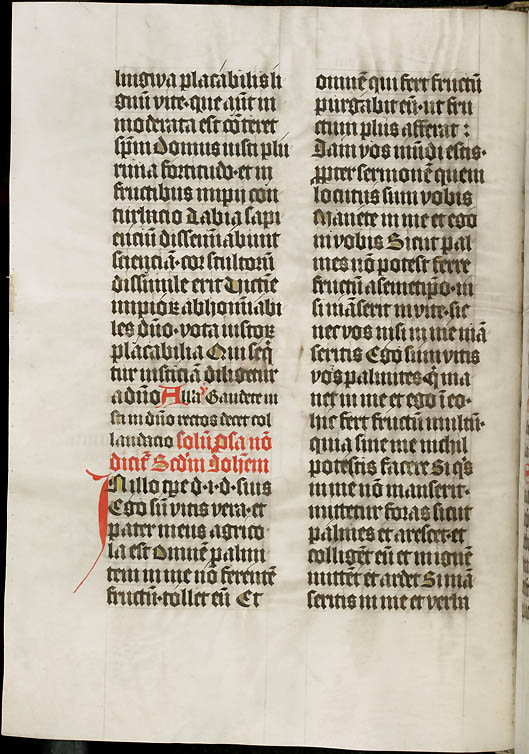 lingwa placabilis li
gnū vite· que aūt in
moderata est cōteret
spm̄ Domus iusti plu
rima fortitudo· et in
fructibus impii con
turbacio Labia sapi
enciū disseminabunt
scienciā· cor stultorū
dissimile erit Victīe
impioꝝ abhominabi
les dn̄o· vota iustoꝝ
placabilia Qui seq̄
tur iusticiā diligetur
a dn̄o Alla͛ Gaudete iu
sti in dn̄o rectos decet col
laudacio solū psa nō
dicit͛ Scdm Johēm
In illo tp̄e d· i· d· suis
Ego sū vitis vera· et
pater meus agrico
la est Omnē palmi
tem in me nō ferentē
fructū· tollet eū Et
omnē qui fert fructū
purgabit eū· ut fru
ctum plus afferat :
Iam vos mūdi estis·
ꝓpter sermonē quem
locutus sum vobis
Manete in me et ego
in vobis Sicut pal
mes nō potest ferre
fructū a semetip̄o· ni
si māserit in vite· sic
nec vos nisi in me mā
seritis Ego sum vitis
vos palmites· q̄ ma
net in me et ego ī eo·
hic fert fructū multū·
quia sine me nichil
potestis facere Si q̄s
in me nō manserit·
mittetur foras sicut
palmes et arescet· et
colligēt eū et in ignē
mittēt et ardet Si mā
seritis in me et verba